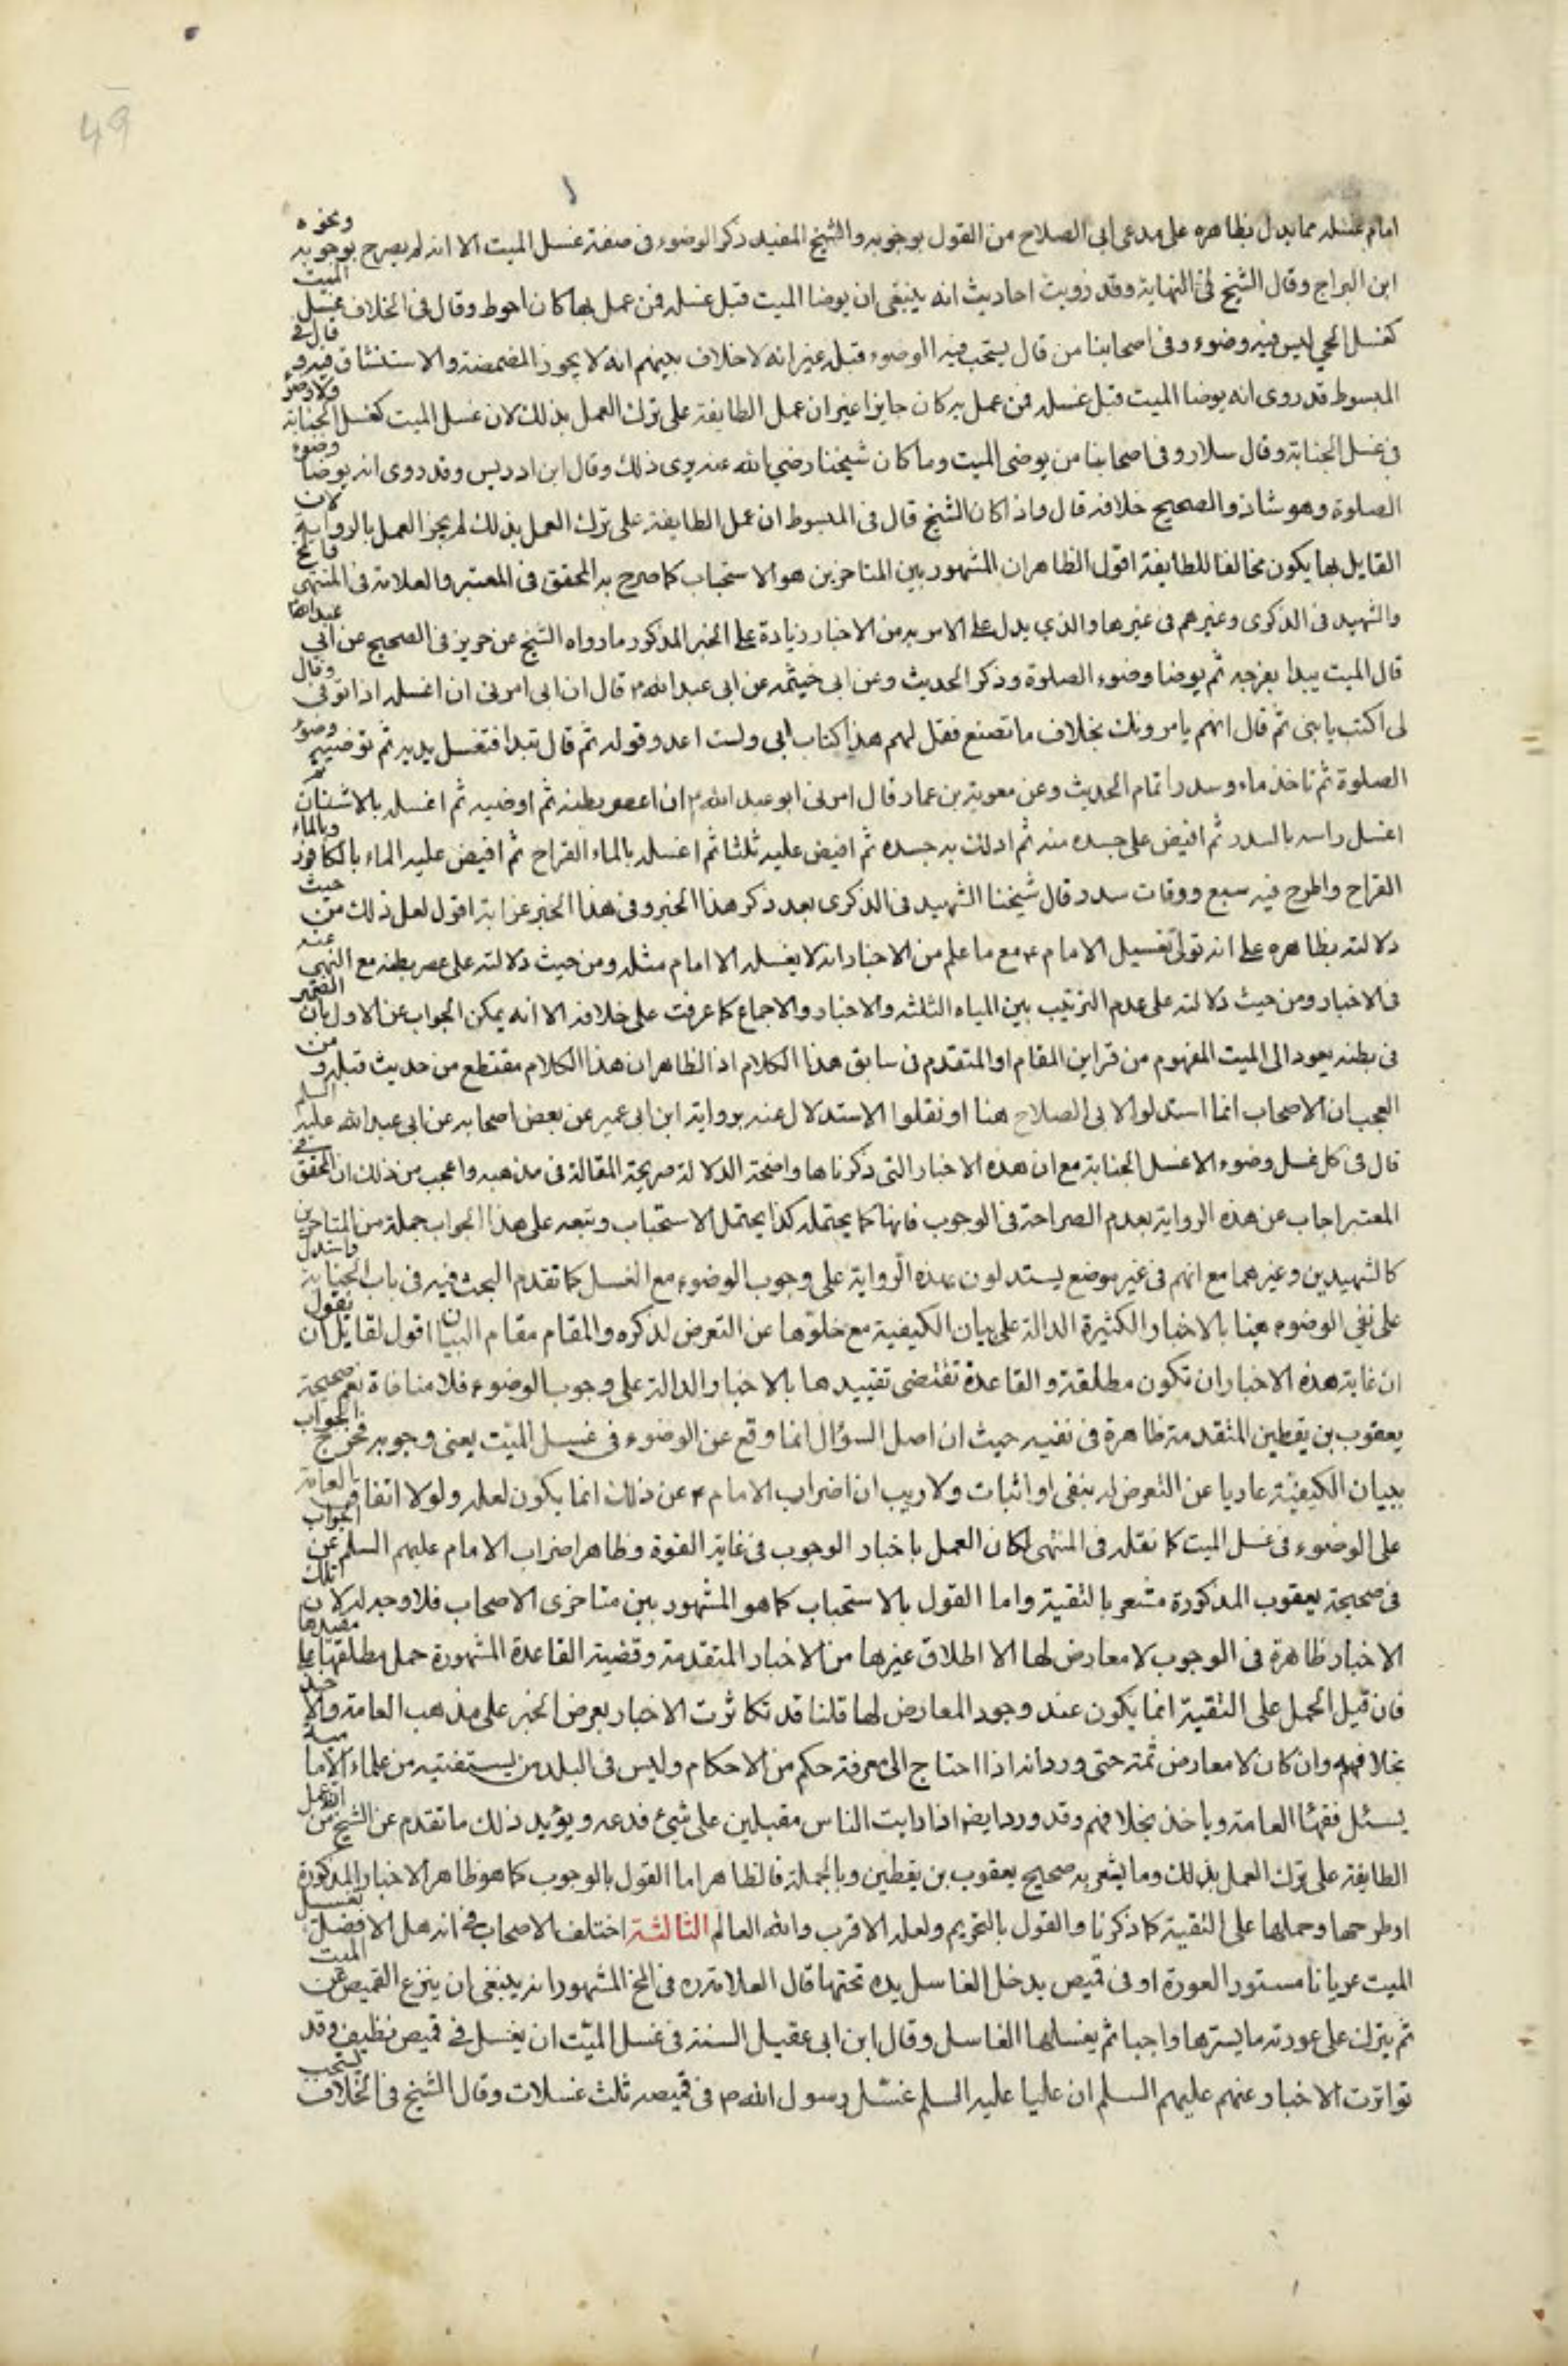 49
امام غسله مما يدل بظاهره على مدعى ابى الصلاح من القول بوجوبه والشيخ المفيد ذكر الوضوء فى صفة غسل الميت الا انه لم يصرح بوجوبه ونحوه
ابن البراج وقال الشيخ فى النهاية وقد رويت احاديث انه ينبغى ان يوضا الميت قبل غسله فمن عمل بها كان احوط وقال فى الخلاف غسل الميت
كغسل الحي ليس فيه وضوء وفى اصحابنا من قال يستحب فيه الوضوء قبله غير انه لا خلاف بينهم انه لا يجوز المضمضة والاستنشاق فيه و قال فى
المبسوط قد روى انه يوضا الميت قبل غسله فمن عمل به كان جايزا غير ان عمل الطايفة على ترك العمل بذلك لان غسل الميت كغسل الجنابة ولا وضوء
فى غسل الجنابة وقال سلار وفى اصحابنا من يوضى الميت وما كان شيخنا رضي الله عنه يرى ذلك وقال ابن ادريس وقد روى انه يوضا وضوء
الصلوة وهو شاذ والصحيح خلافه قال واذا كان الشيخ قال فى المبسوط ان عمل الطايفة على ترك العمل بذلك لم يجز العمل بالرواية لان
القايل بها يكون مخالفا للطايفة اقول الظاهر ان المشهور بين المتاخرين هو الاستحباب كما صرح به المحقق فى المعتبر والعلامة فى المنتهى
والشهيد فى الذكرى وغيرهم فى غيرها والذي يدل على الامر به من الاخبار زيادة على الخبر المذكور ما رواه الشيخ عن حريز فى الصحيح عن ابي عبد الله
قال الميت يبدا بفرجه ثم يوضا وضوء الصلوة وذكر الحديث وعن ابى خيثمه عن ابى عبد الله ع قال ان ابى امرنى ان اغسله اذا توفى وقال
لى اكتب يا بنى ثم قال انهم يامرونك بخلاف ما تصنع فقل لهم هذا كتاب ابى ولست اعدو قوله ثم قال تبدا فتغسل يديه ثم توضيه وضوء
الصلوة ثم تاخذ ماء وسدرا تمام الحديث وعن معوية بن عمار قال امرنى ابو عبد الله ع ان اعصر بطنه ثم اوضيه ثم اغسله بالاشنان ثم
اغسل راسه بالسدر ثم افيض على جسده منه ثم ادلك به جسده ثم افيض عليه ثلثا ثم اغسله بالماء القراح ثم افيض عليه الماء بالكافور وبالماء
القراح واطرح فيه سبع ورقات سدر قال شيخنا الشهيد فى الذكرى بعد ذكر هذا الخبر وفى هذا الخبر غرابة اقول لعل ذلك من حيث
دلالته بظاهره على انه تولى تغسيل الامام ع مع ما علم من الاخبار انه لا يغسله الا امام مثله ومن حيث دلالته على عصر بطنه مع النهى عنه
فى الاخبار ومن حيث دلالته على عدم الترتيب بين المياه الثلثه والاخبار والاجماع كما عرفت على خلافه الا انه يمكن الجواب عن الاول بان الضمير
فى بطنه يعود الى الميت المفهوم من قراين المقام او المتقدم فى سابق هذا الكلام اذ الظاهر ان هذا الكلام مقتطع من حديث قبله و من
العجب ان الاصحاب انما استدلوا لابى الصلاح هنا او نقلوا الاستدلال عنه برواية ابن ابى عمير عن بعض اصحابه عن ابى عبد الله عليه السلم
قال فى كل غسل وضوء الا غسل الجنابة مع ان هذه الاخبار التى ذكرناها واضحة الدلالة صريحة المقالة فى مذهبه واعجب من ذلك ان المحقق فى
المعتبر اجاب عن هذه الرواية بعدم الصراحة فى الوجوب فانها كما يحتمله كذا يحتمل الاستحباب وتبعه على هذا الجواب جملة من المتاخرين
كالشهيدين وغيرهما مع انهم فى غير موضع يستدلون بهذه الرواية على وجوب الوضوء مع الغسل كما تقدم البحث فيه فى باب الجنابة واستدل
على نفى الوضوء هنا بالاخبار الكثيرة الدالة على بيان الكيفية مع خلوها عن التعرض لذكره والمقام مقام البيان اقول لقايل ان يقول
ان غاية هذه الاخبار ان تكون مطلقة والقاعدة تقتضى تقييدها بالاخبار الدالة على وجوب الوضوء فلا منافاة نعم صحيحة
يعقوب بن يقطين المتقدمة ظاهرة فى نفيه حيث ان اصل السؤال انما وقع عن الوضوء فى غسل الميت يعنى وجوبه فخرج الجواب
ببيان الكيفية عاريا عن التعرض له بنفى او اثبات ولا ريب ان اضراب الامام ع عن ذلك انما يكون لعلة ولولا اتفاق العامة
على الوضوء فى غسل الميت كما نقله فى المنتهى لكان العمل باخبار الوجوب فى غاية القوة وظاهر اضراب الامام عليهم السلم عن الجواب
فى صحيحة يعقوب المذكورة مشعر بالتقية واما القول بالاستحباب كما هو المشهور بين متاخرى الاصحاب فلا وجه له لان تلك
الاخبار ظاهرة فى الوجوب لا معارض لها الا اطلاق غيرها من الاخبار المتقدمة وقضية القاعدة المشهورة حمل مطلقها على مقيدها
فان قيل الحمل على التقية انما يكون عند وجود المعارض لها قلنا قد تكاثرت الاخبار بعرض الخبر على مذهب العامة والاخذ
بخلافهم وان كان لا معارض ثمة حتى ورد انه اذا احتاج الى معرفة حكم من الاحكام وليس فى البلد من يستفتيه من علماء الامامية
يسئل فقها العامة وياخذ بخلافهم وقد ورد ايضا اذا رايت الناس مقبلين على شيئ فدعه ويؤيد ذلك ما تقدم عن الشيخ من ان عمل
الطايفة على ترك العمل بذلك وما يشعر به صحيح يعقوب بن يقطين وبالجملة فالظاهر اما القول بالوجوب كما هو ظاهر الاخبار المذكورة
او طرحها وحملها على التقية كما ذكرنا والقول بالتحريم ولعله الاقرب والله العالم الثالثة اختلف الاصحاب فى انه هل الافضل تغسيل
الميت عريانا مستور العورة او فى قميص يدخل الغاسل يده تحتها قال العلامة ره فى المخ المشهور انه ينبغى ان ينزع القميص عن الميت
ثم يترك على عورته ما يسترها واجبا ثم يغسلها الغاسل وقال ابن ابى عقيل السنة فى غسل الميت ان يغسل فى قميص نظيف وقد
تواترت الاخبار عنهم عليهم السلم ان عليا عليه السلم غسل رسول الله ص فى قميصه ثلث غسلات وقال الشيخ فى الخلاف يستحب